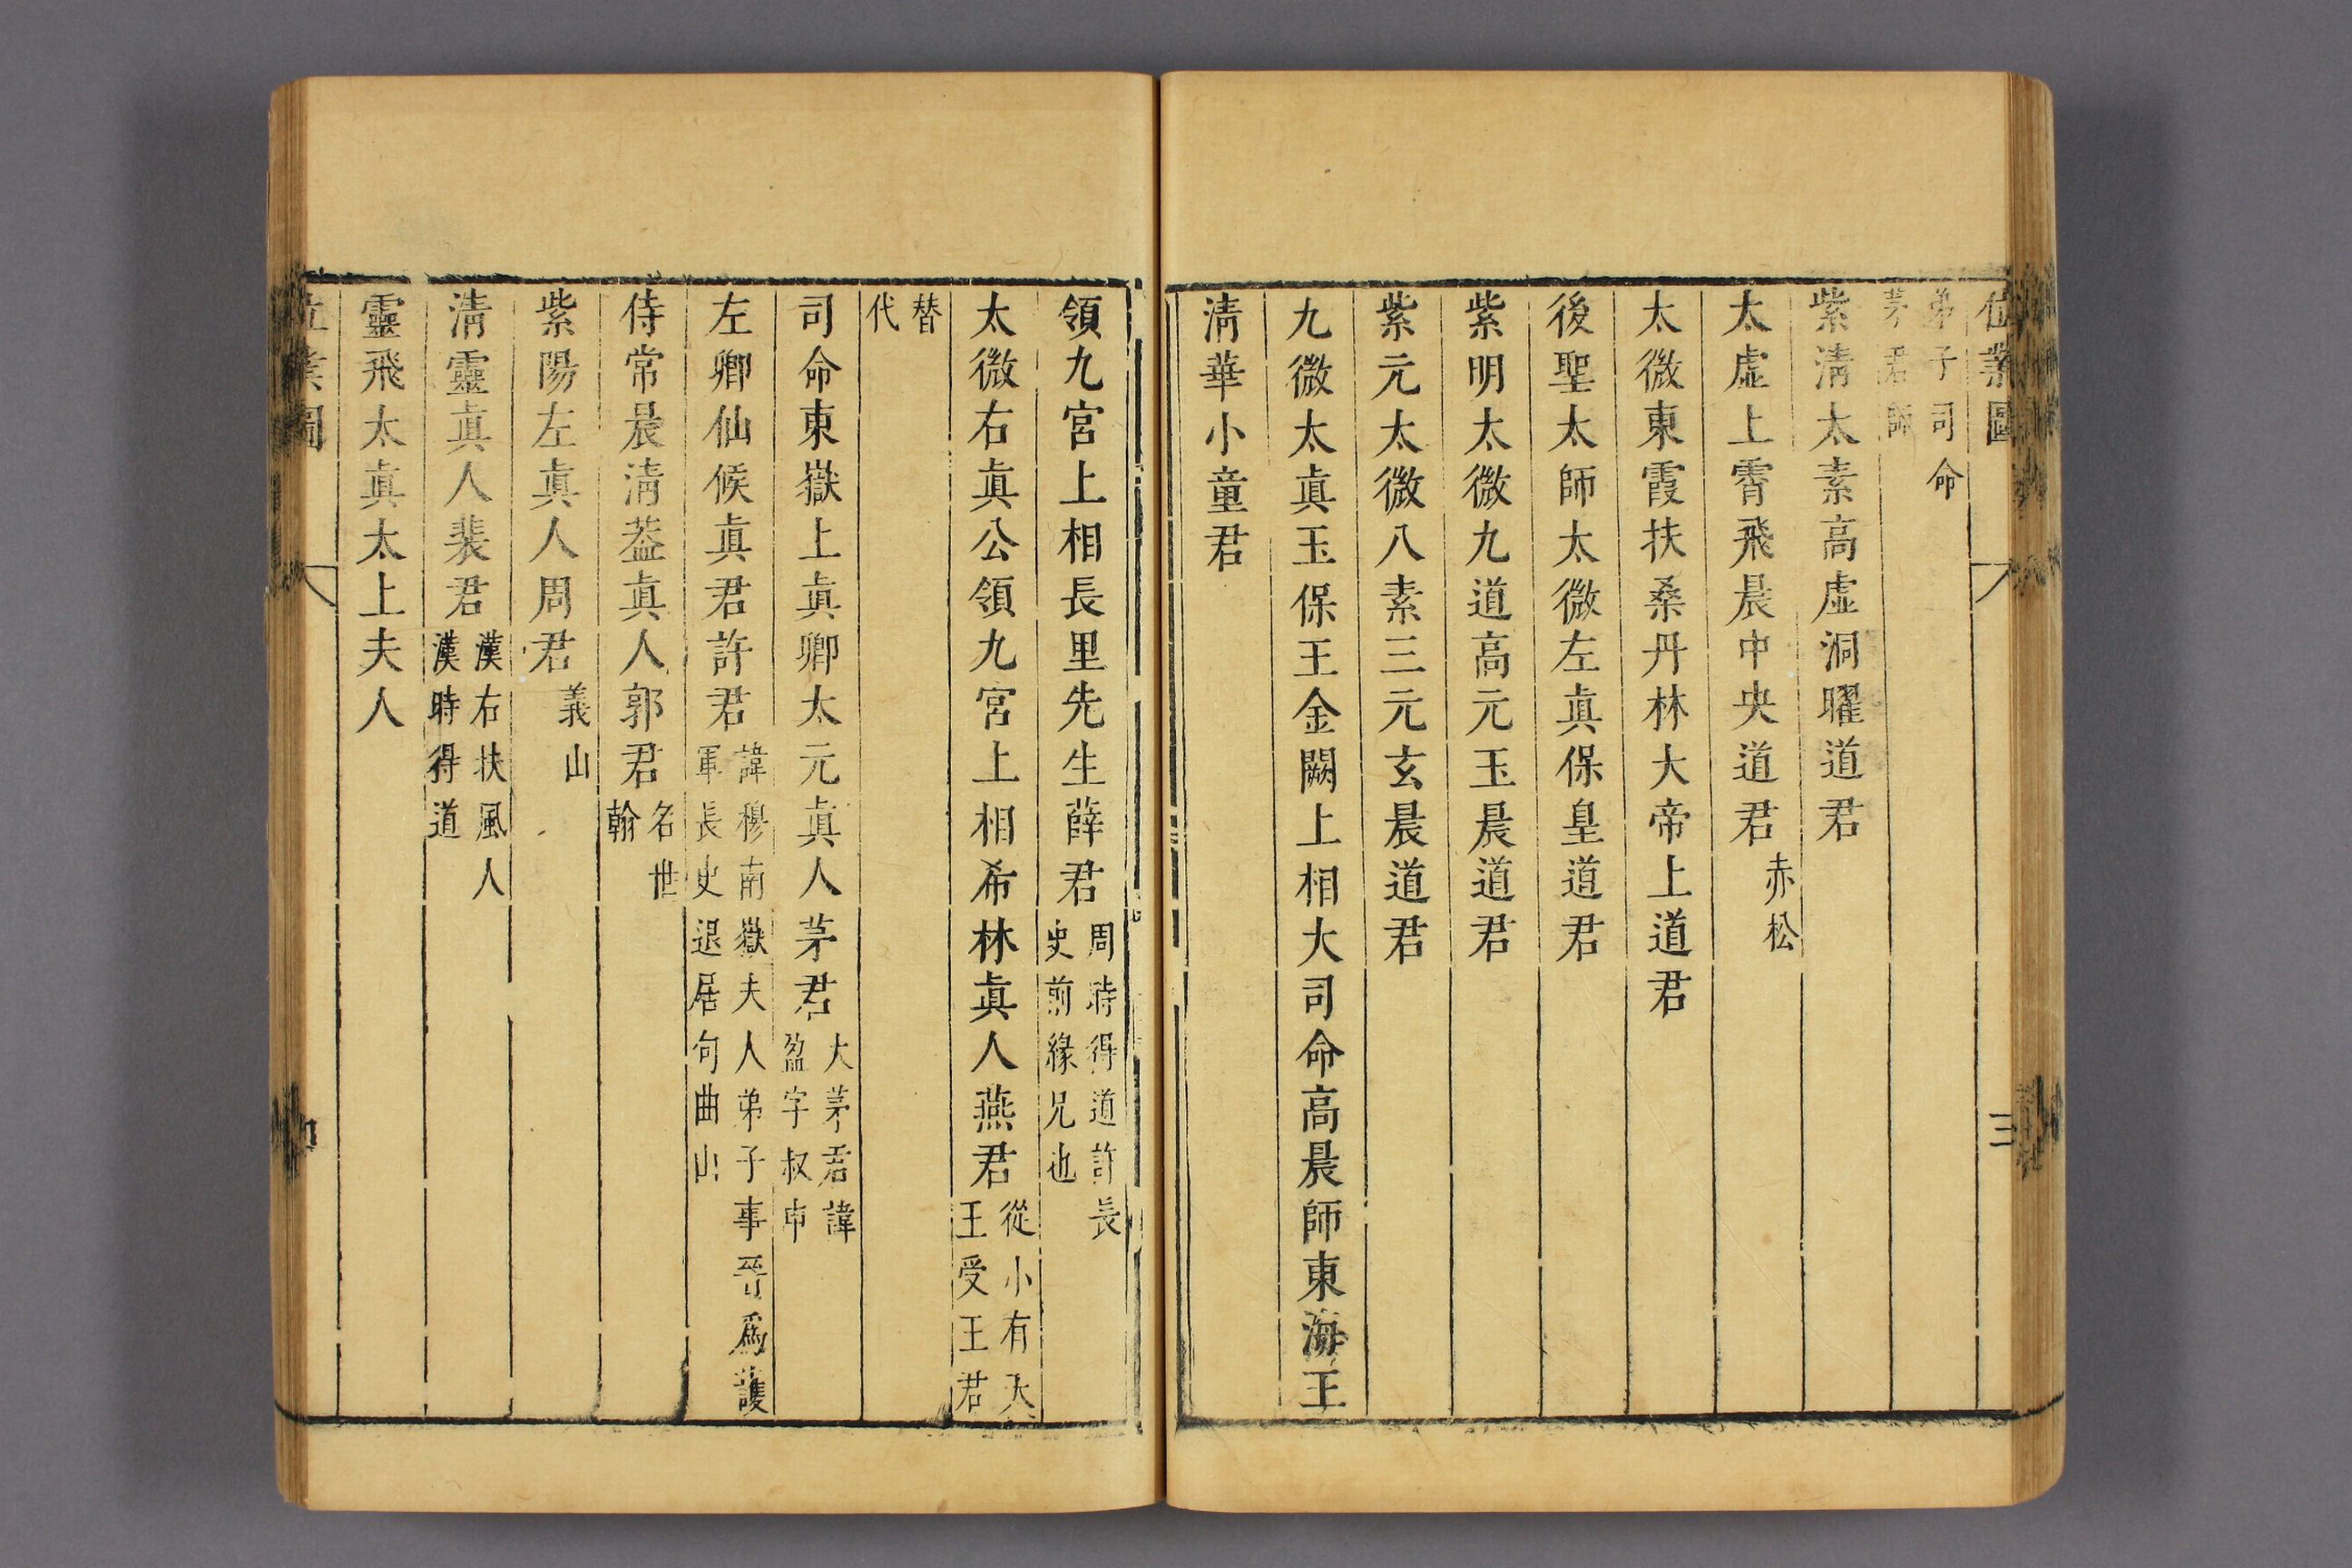 位業圖 三
弟子司命
茅君師
紫淸太素高虛洞曜道君
太虛上霄飛晨中央道君 赤松
太微東霞扶桑丹林大帝上道君
後聖太師太微左眞保皇道君
紫明太微九道高元玉晨道君
紫元太微八素三元玄晨道君
九微太眞玉保王金闕上相大司命高晨師東海王
淸華小童君
領九宮上相長里先生薛君 周時得道許長
史前緣兄也
太微右眞公領九宮上相希林眞人燕君 從小有天
王受王君
替
代
司命東嶽上眞卿太元眞人茅君 大茅君諱
盈字叔申
左卿仙候眞君許君 諱穆南嶽夫人弟子事晉爲護
軍長史退居句曲山
侍常晨淸葢眞人郭君 名世
翰
紫陽左眞人周君 義山
淸靈眞人裴君 漢右扶風人
漢時得道
靈飛太眞太上夫人
位業圖